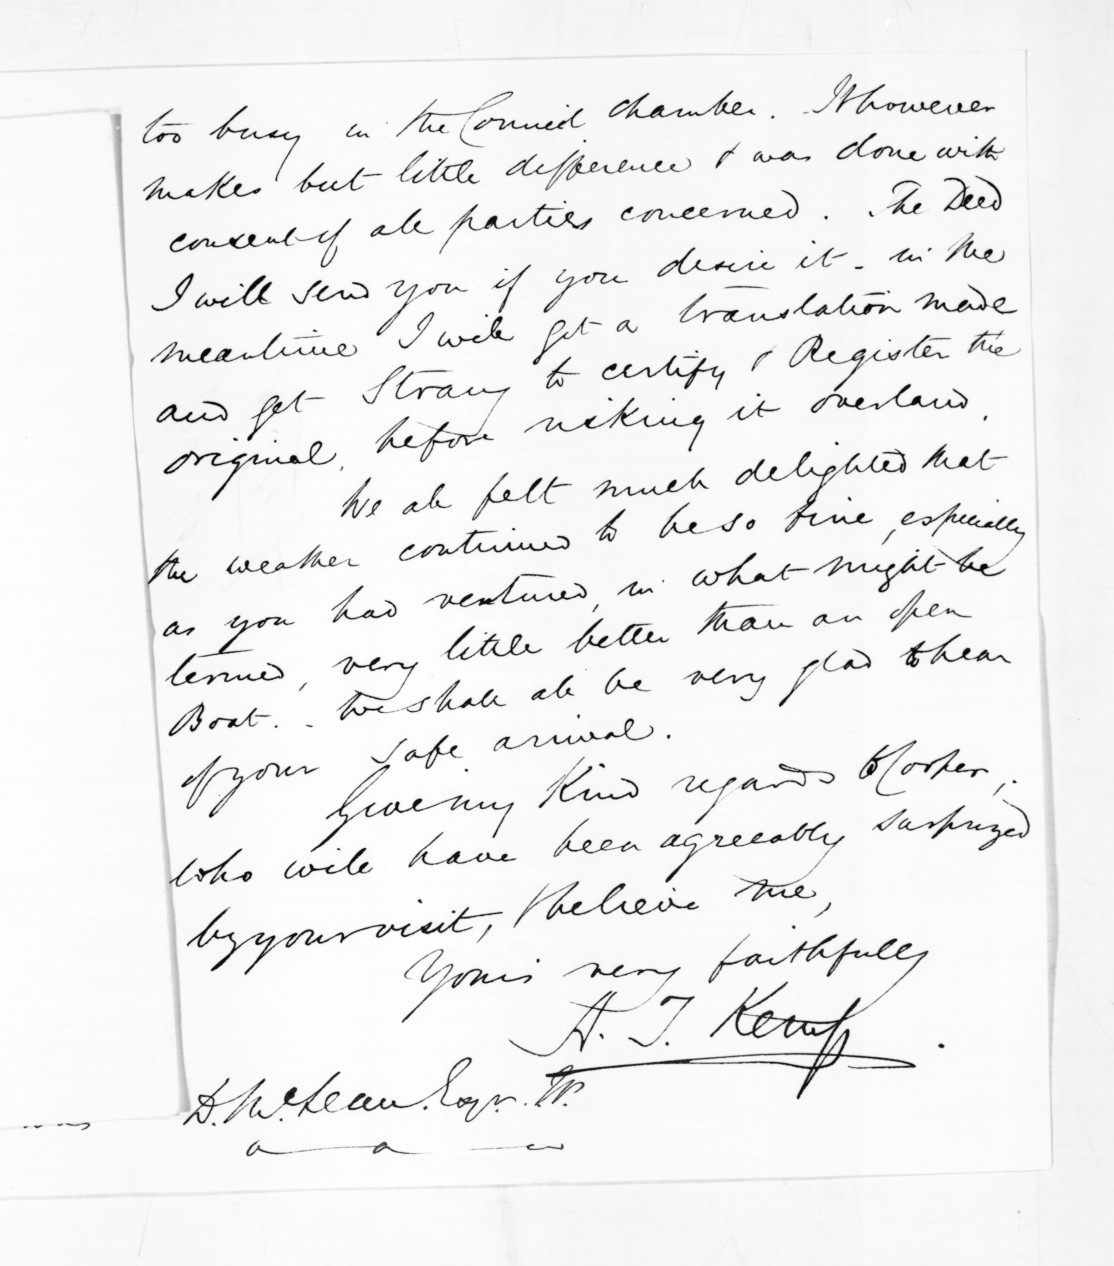 too busy in the Council chamber. It however
makes but little difference & was done with
consent of all parties concerned. The Deed
I will send you if you desire it - in the
meantime I will get a translation made
and get Strang to certify & Register the
original, before risking it overland.
We all felt much delighted that
the weather continued to be so fine, especially
as you had ventured, in what might be
termed, very little better than an open
Boat. - We shall all be very glad to hear
of your safe arrival.
Give my Kind regards to Cooper,
who will have been agreeably surprized
by your visit, & believe me,
Yours very faithfully
H. T. Kemp.
D. McLean. Esqr.